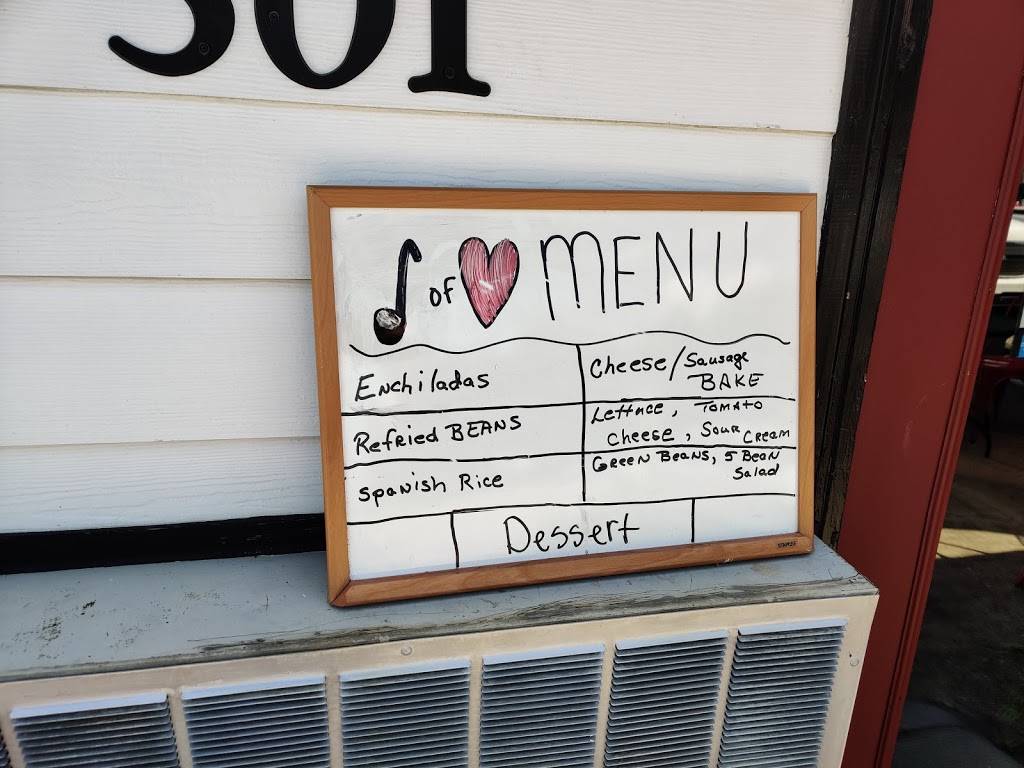 301
of MENU
Enchiladas
Refried BEANS
Spanish Rice
Cheese/Sausage
BAKE
Lettuce, TOMATO
cheese, Sour CREAM
GREEN BEANS, 5 Bean
Salad
Dessert